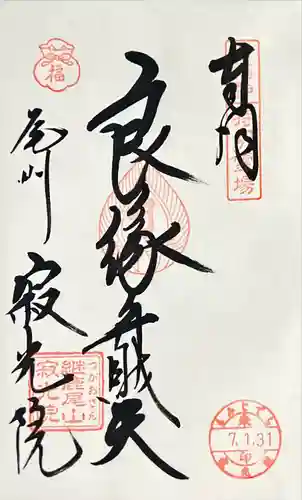 奉拝
良縁弁財天
尾州
寂光院
福
継鹿尾山
つがおさん
寂光院
7.1.31
印
場